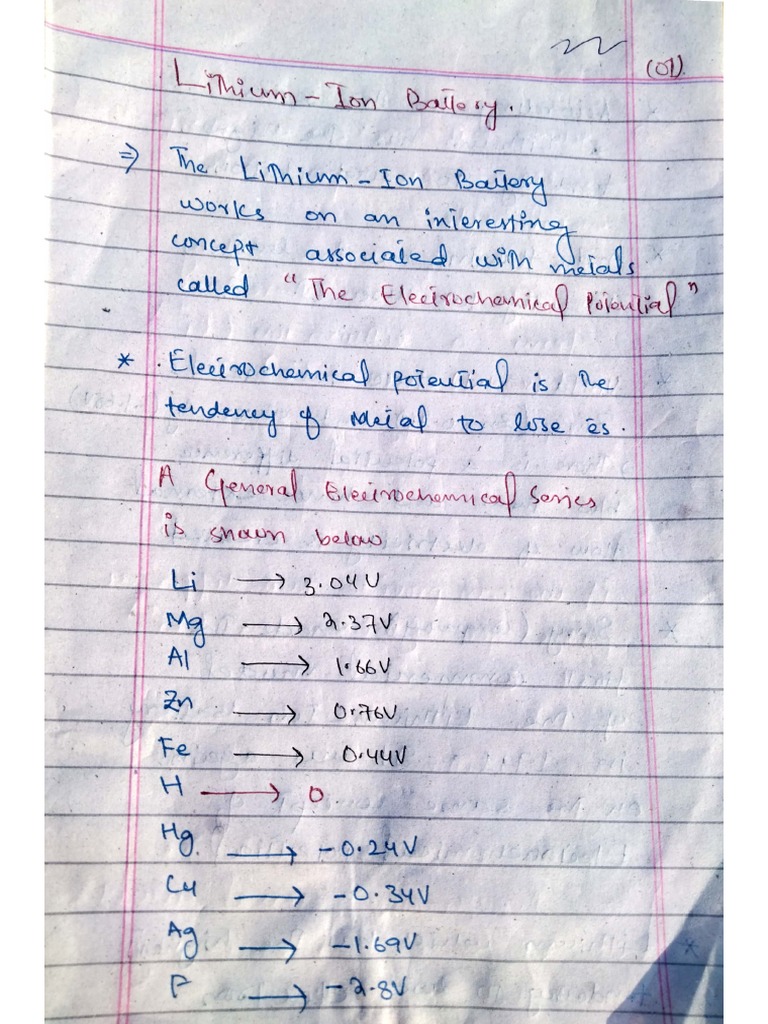 (01).
Lithium-Ion Battery.
⇒ The Lithium-Ion Battery
works on an interesting
concept associated with metals
called "The Electrochemical Potential"
* . Electrochemical potential is the
tendency of Metal to lose es.
A General Electrochemical Series
is shown below
Li → 3.04V
Mg → 2.37V
Al → 1.66V
Zn → 0.76V
Fe → 0.44V
H → 0
Hg. → -0.24V
Cu → -0.34V
Ag → -1.69V
F → -2.8V